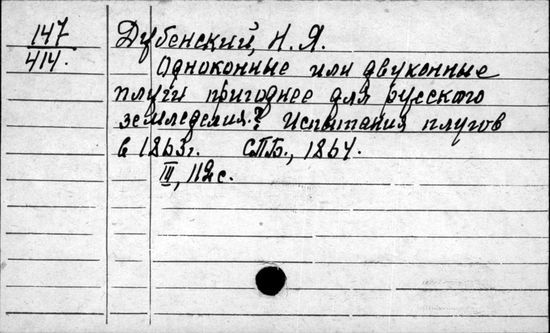 147
414.
Дубенский, Н. Я.
Одноконные или двуконные
плуги пригоднее для русского
земледелия? Испытания плугов
в 1863г. СПБ., 1864.
III, 112с.